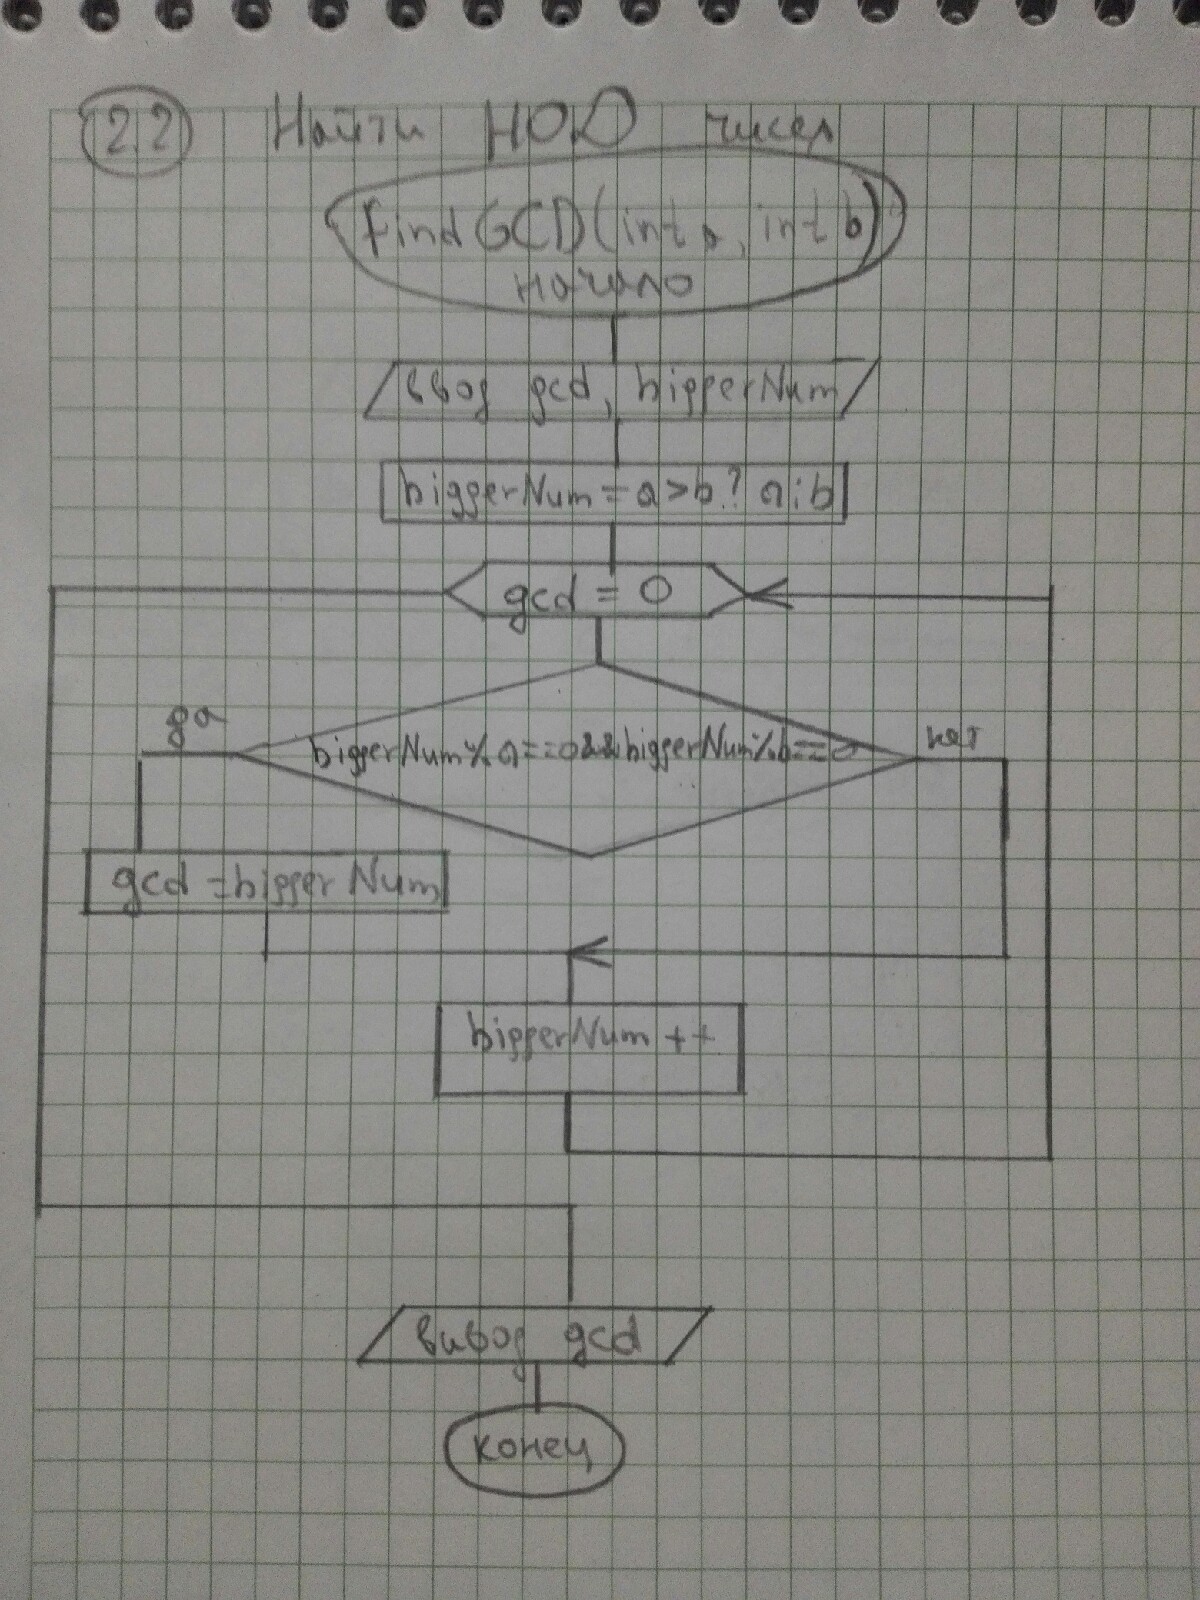 2.2 Найти НОД чисел
findGCD(int a, int b)
начало
ввод gcd, biggerNum
biggerNum = a>b? a:b
gcd = 0
да
biggerNum%a==0&&biggerNum%b==0
нет
gcd = biggerNum
biggerNum ++
вывод gcd
конец